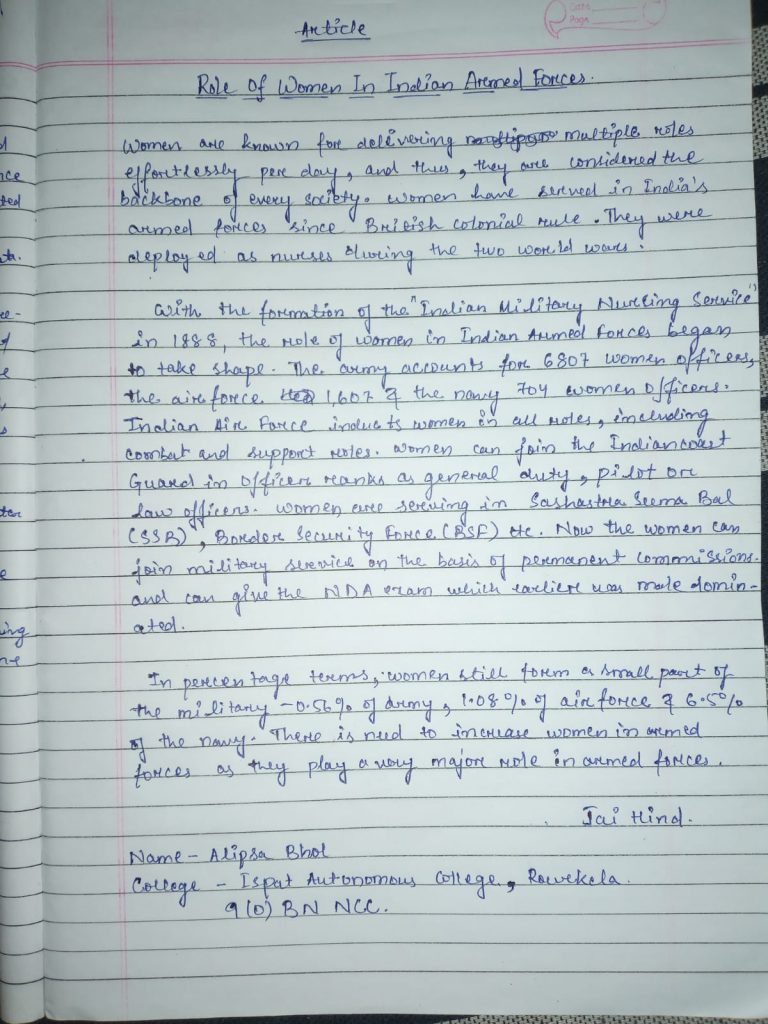 Date
Page
Article
Role Of Women In Indian Armed Forces.
Women are known for delivering multiple roles
effortlessly per day, and thus, they are considered the
backbone of every society. Women have served in India's
armed forces since British colonial rule. They were
deployed as nurses during the two world wars.
With the formation of the "Indian Military Nursing Service"
in 1888, the role of women in Indian Armed Forces began
to take shape. The army accounts for 6807 women officers,
the air force 1,607 & the navy 704 women officers.
Indian Air Force inducts women in all roles, including
combat and support roles. Women can join the Indian coast
Guard in officer ranks as general duty, pilot or
law officers. Women are serving in Sashastra Seema Bal
(SSB), Border Security Force (BSF) etc. Now the women can
join military service on the basis of permanent commissions.
and can give the NDA exam which earlier was male domin-
ated.
In percentage terms, women still form a small part of
the military - 0.56% of army, 1.08% of air force & 6.5%
of the navy. There is need to increase women in armed
forces as they play a very major role in armed forces.
Jai Hind.
Name - Alipsa Bhol
College - Ispat Autonomous College, Rourkela.
9(O) BN NCC.